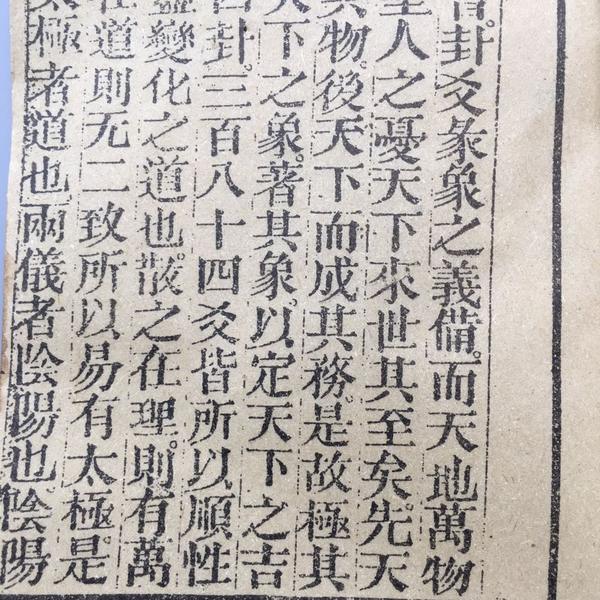 卦爻彖象之義備。而天地萬物
人之憂天下來世其至矣。先天
其物。後天下而成其務。是故極其
下之象。著其象。以定天下之吉
四卦。三百八十四爻皆所以順性
盡變化之道也。散之在理。則有萬
在道則无二致所以易有太極。是
太極者道也。兩儀者陰陽也。陰陽